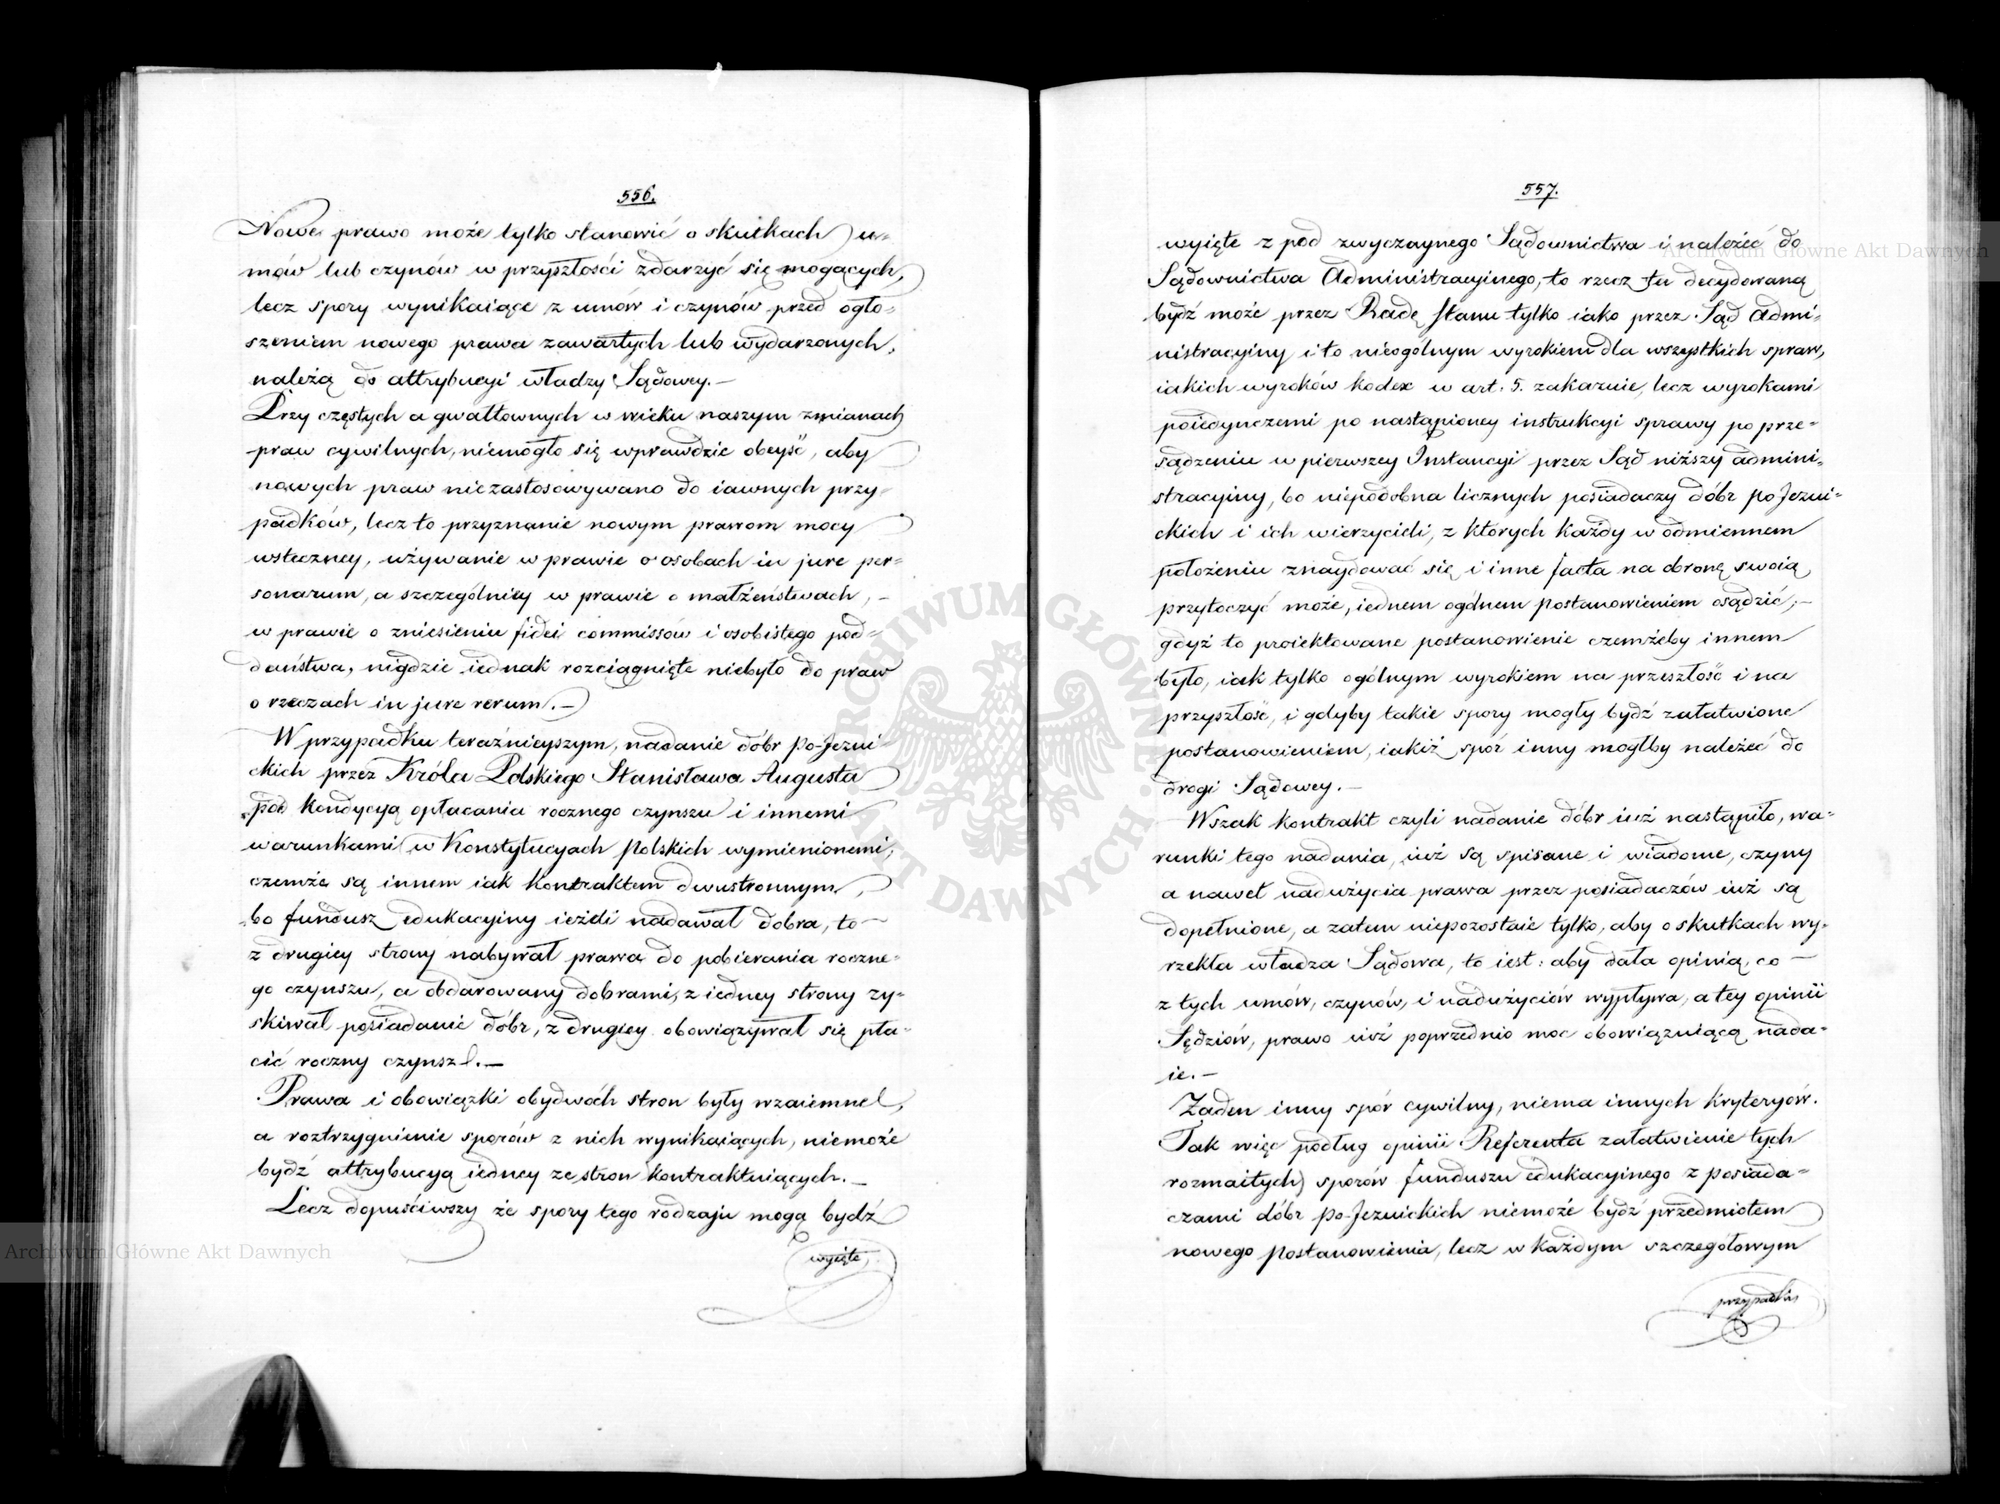 556.
Nowe prawo może tylko stanowić o skutkach u-
mów lub czynów w przyszłości zdarzyć się mogących,
lecz spory wynikaiące z umów i czynów przed ogło-
szeniem nowego prawa zawartych lub wydarzonych,
należą do attrybucyi władzy Sądowey.—
Przy częstych a gwałtownych w wieku naszym zmianach
praw cywilnych, niemogło się wprawdzie obeyść, aby
nowych praw niezastosowywano do iawnych przy-
padków, lecz to przyznanie nowym prawom mocy
wsteczney, używanie w prawie o osobach in jure per-
sonarum, a szczególniey w prawie o małżeństwach,—
w prawie o zniesieniu fidei commissów i osobistego pod-
daństwa, nigdzie iednak rozciągnięte niebyło do praw
o rzeczach in jure rerum.—
W przypadku teraźnieyszym, nadanie dóbr po-Jezui-
ckich przez Króla Polskiego Stanisława Augusta
pod kondycyą opłacania rocznego czynszu i innemi
warunkami w Konstytucyach Polskich wymienionemi,
czemże są innem iak kontraktem dwustronnym,
bo fundusz edukacyiny ieżeli nadawał dobra, to—
z drugiey strony nabywał prawa do pobierania roczne-
go czynszu, a obdarowany dobrami, z iedney strony zy-
skiwał posiadanie dóbr, z drugiey obowiązywał się pła-
cić roczny czynsz.—
Prawa i obowiązki obydwóch stron były wzaiemne,
a roztrzygnienie sporów z nich wynikaiących, niemoże
bydź attrybucyą iedney ze stron kontraktuiących.—
Lecz dopuściwszy że spory tego rodzaju mogą bydź
wyięte,
557.
wyięte z pod zwyczaynego Sądownictwa i należeć do
Sądownictwa Administracyinego, to rzecz ta decydowaną
bydź może przez Radę Stanu tylko iako przez Sąd Admi-
nistracyiny i to nieogólnym wyrokiem dla wszystkich spraw,
iakich wyroków kodex w art. 5. zakazuie, lecz wyrokami
poiedynczemi po nastąpioney instrukcyi sprawy po prze-
sądzeniu w pierwszey Instancyi przez Sąd niższy admini-
stracyiny, bo niepodobna licznych posiadaczy dóbr po Jezui-
ckich i ich wierzycieli, z których każdy w odmiennem
położeniu znaydować się, i inne facta na obronę swoią
przytoczyć może, iednem ogólnem postanowieniem osądzić;—
gdyż to proiektowane postanowienie czemżeby innem
było, iak tylko ogólnym wyrokiem na przeszłość i na
przyszłość, i gdyby takie spory mogły bydź załatwione
postanowieniem, iakiż spór inny mógłby należeć do
drogi Sądowey.—
Wszak kontrakt czyli nadanie dóbr iuż nastąpiło, wa-
runki tego nadania, iuż są spisane i wiadome, czyny
a nawet nadużycia prawa przez posiadaczów iuż są
dopełnione, a zatem niepozostaie tylko, aby o skutkach wy-
rzekła władza Sądowa, to iest: aby dała opinią, co—
z tych umów, czynów, i nadużyciów wypływa, a tey opinii
Sędziów, prawo iuż poprzednio moc obowiązuiącą nada-
ie.—
Żaden inny spór cywilny, niema innych kryteryów.
Tak więc podług opinii Referenta załatwienie tych
rozmaitych sporów funduszu edukacyinego z posiada-
czami dóbr po-Jezuickich niemoże bydź przedmiotem
nowego postanowienia, lecz w każdym szczegółowym
przypadku
Archiwum Główne Akt Dawnych
Archiwum Główne Akt Dawnych
ARCHIWUM GŁÓWNE • AKT DAWNYCH •